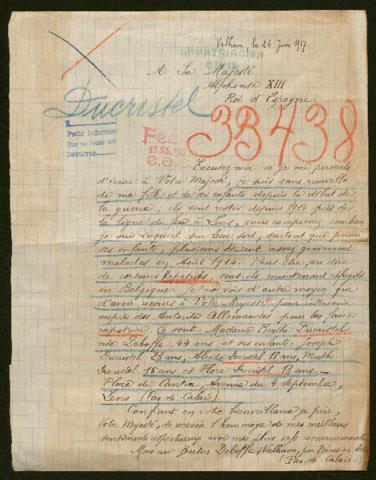 le 26 Juin 1917
REPATRIACION
A Sa Majesté
Alphonse XIII
Roi d'Espagne
Ducristel
33438
Excusez-moi si je me permets
d'écrire à Votre Majesté, je suis sans nouvelle
de ma fille et de ses enfants depuis le début de
la guerre; ils sont restés depuis près de
la ligne de feu à Lens, vous comprenez combien
je suis inquiet sur leur sort, surtout que
ses enfants, plusieurs étaient assez
malades en Août 1914. Peut-être, au dire
de certains Rapatriés, sont-ils maintenant
en Belgique. Je ne vois d'autre moyen que
d'avoir recours à Votre Majesté pour intervenir
auprès des Autorités Allemandes pour les faire
rapatrier. Ce sont: Madame Ducristel
née Deboffe, 44 ans et ses enfants: Joseph
Ducristel ans, Ducristel 18 ans, Marthe
Ducristel 15 ans et Flore Ducristel 13 ans —
Place du Cantin, Avenue du 4 Septembre,
Lens (Pas de Calais)
Confiant en votre bienveillance je prie,
Votre Majesté, de recevoir l'hommage de mes meilleurs
sentiments respectueux avec mes plus vifs remerciements.
Monsieur Deboffe, à par
(Pas de Calais